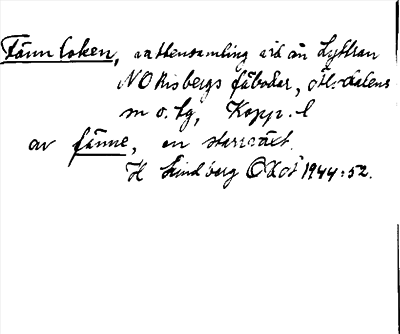 Fänn loken, vattensamling vid ån Lyttran
NO Risbergs fäbodar, Älvdalens
sn o. tg, Kopp. l
av fänne, en starrväxt.
H Lindberg OKot 1944:52.